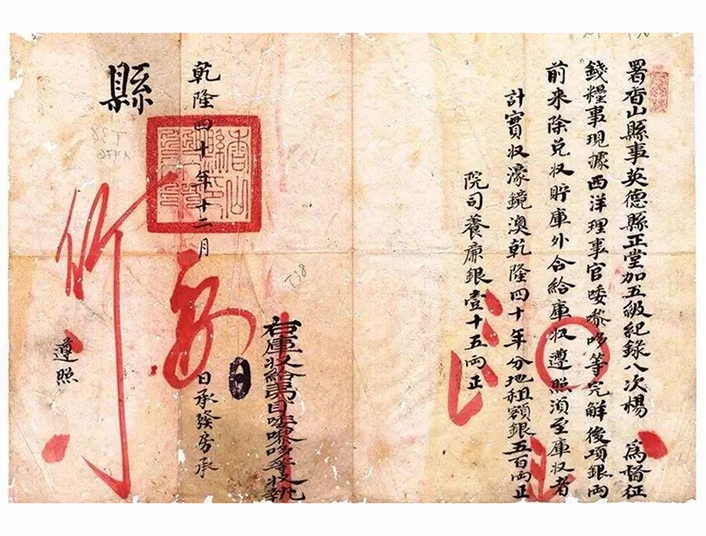 署香山縣事英德縣正堂加五級紀錄八次楊 爲督征
錢糧事現據西洋理事官喽嚟哆等完解後項銀兩
前来除兑收貯庫外合給庫收遵照須至庫收者
計實收濠鏡澳乾隆四十年分地租額銀五百兩正
院司養廉銀壹十五兩正
右庫收給夷目喽嚟哆等收執
乾隆四十年十二月 日承發房承
縣
遵照
T38